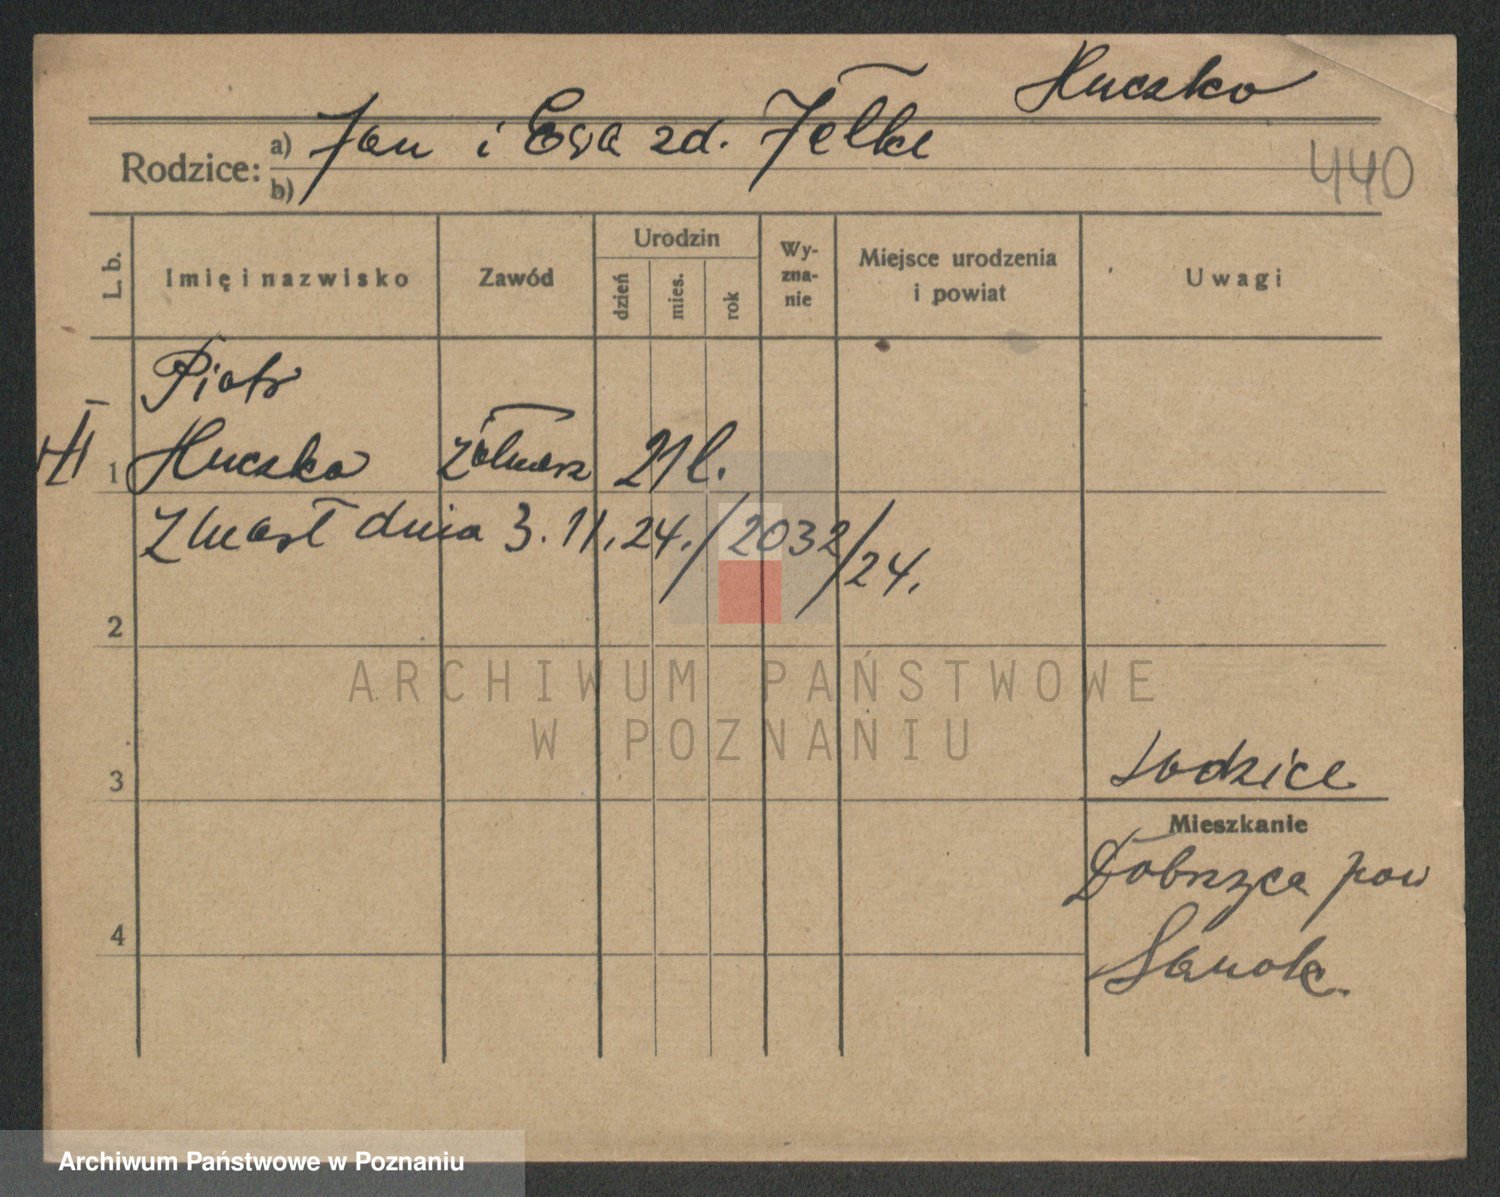 Huczko
Rodzice: a) Jan i Ewa zd. Felke
b)
440
L. b. Imię i nazwisko Zawód Urodzin dzień mies. rok Wy-zna-nie Miejsce urodzenia i powiat Uwagi
Piotr
III 1 Huczko żołnierz 21 l.
Zmarł dnia 3.11.24. /2032/24.
2
ARCHIWUM PAŃSTWOWE
W POZNANIU
3 rodzice
Mieszkanie
Dobrzyca pow
4 Sanok.
Archiwum Państwowe w Poznaniu